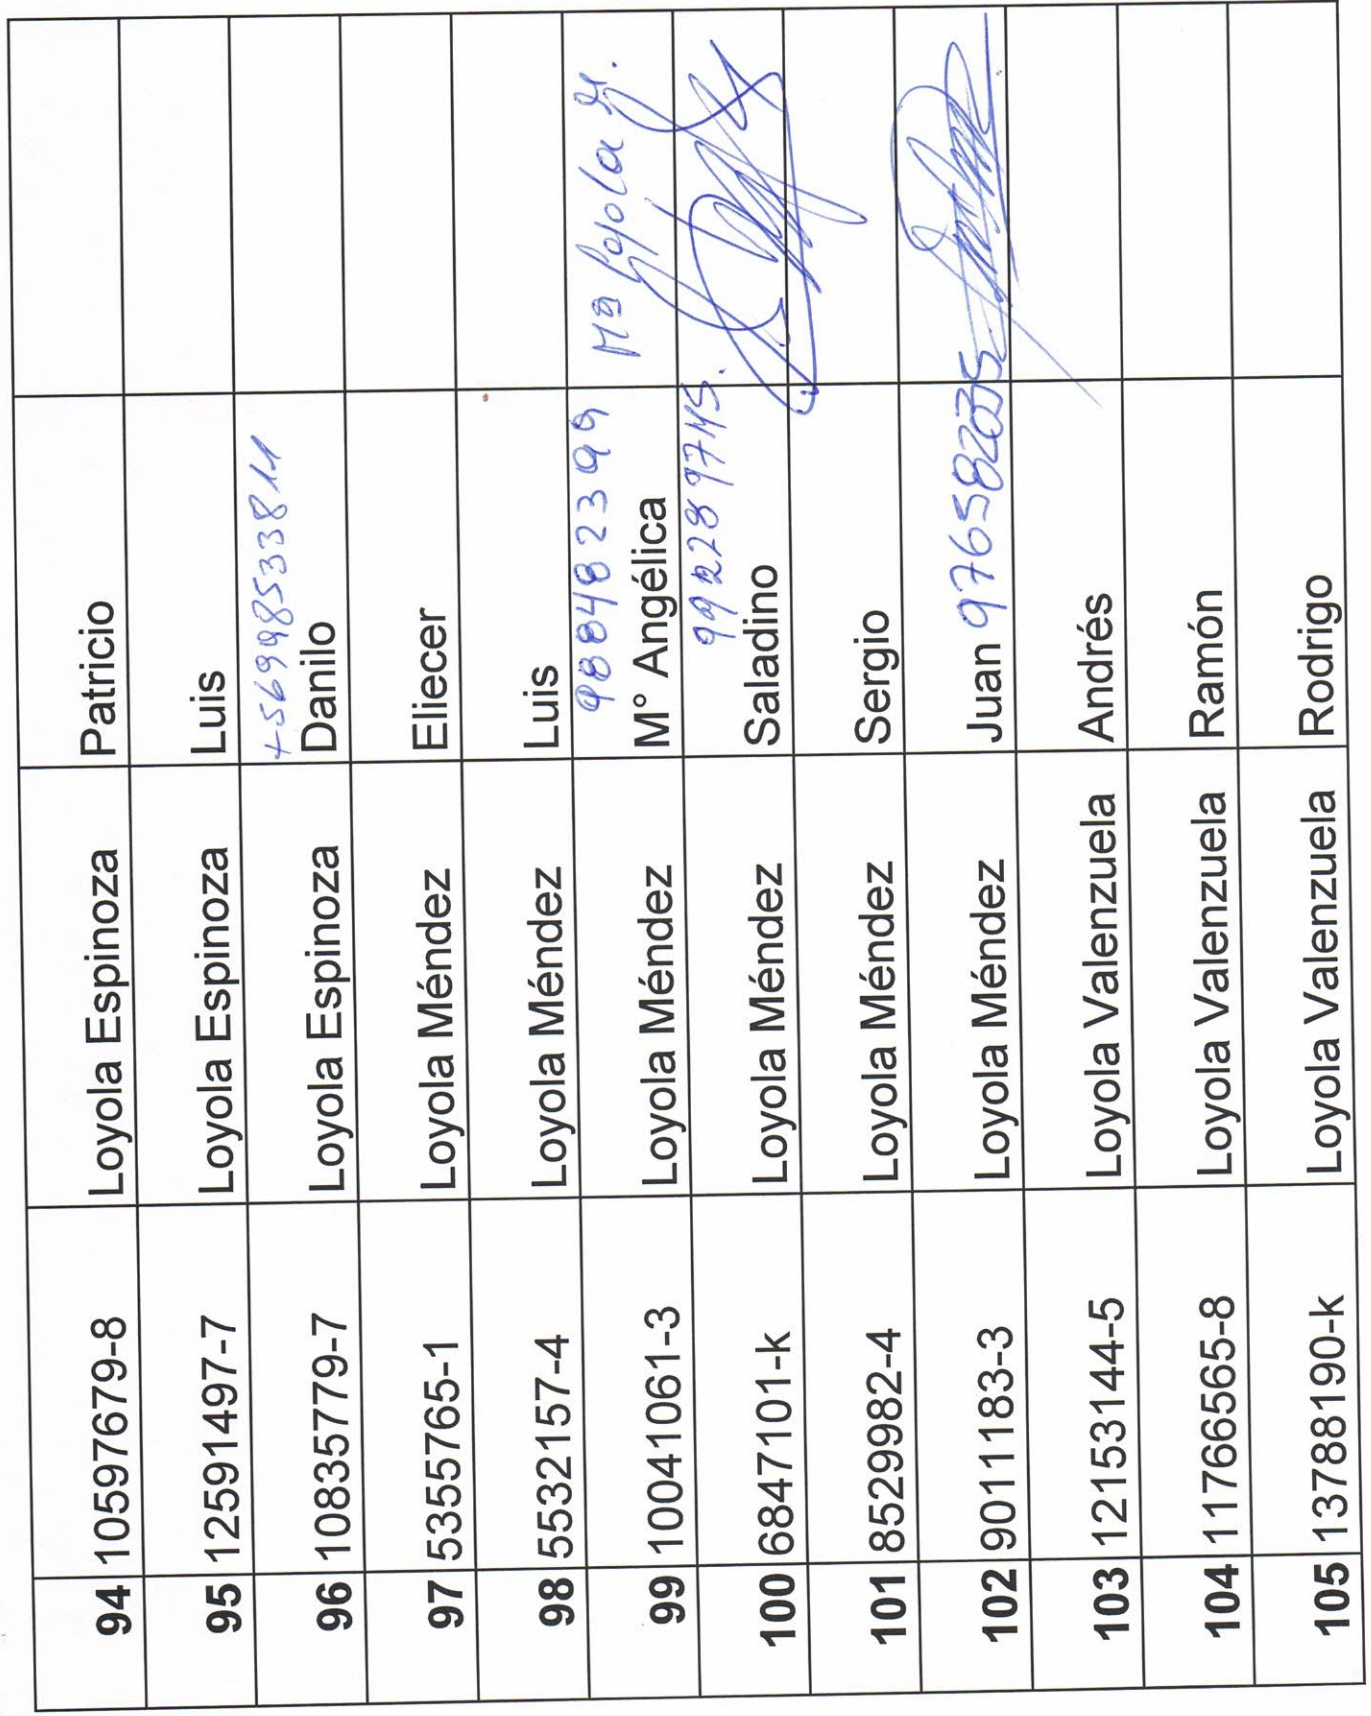 94 10597679-8 Loyola Espinoza Patricio
95 12591497-7 Loyola Espinoza Luis
+56998533811
96 10835779-7 Loyola Espinoza Danilo
97 5355765-1 Loyola Méndez Eliecer
98 5532157-4 Loyola Méndez Luis
988482399 Mª Loyola M.
99 10041061-3 Loyola Méndez M° Angélica
992289745.
100 6847101-k Loyola Méndez Saladino
101 8529982-4 Loyola Méndez Sergio
102 9011183-3 Loyola Méndez Juan
103 12153144-5 Loyola Valenzuela Andrés
104 11766565-8 Loyola Valenzuela Ramón
105 13788190-k Loyola Valenzuela Rodrigo